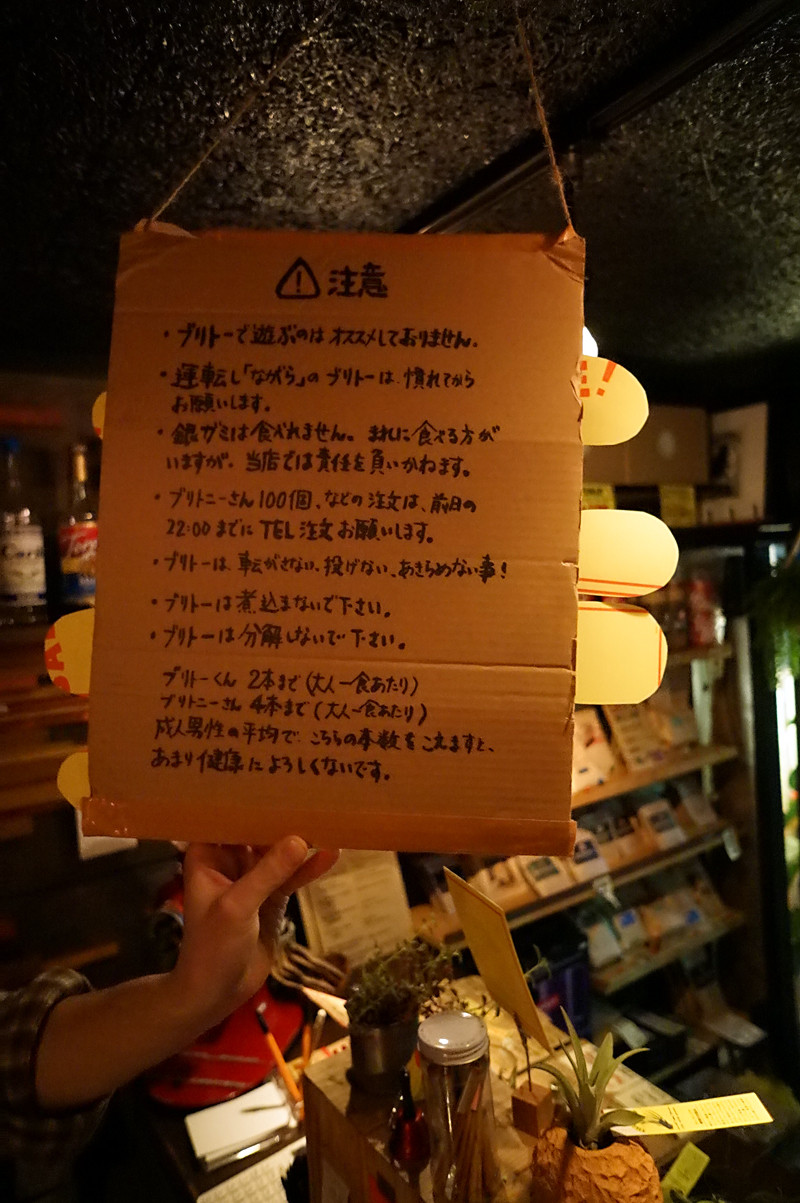 注意
・ブリトーで遊ぶのはオススメしておりません。
・運転し「ながら」のブリトーは、慣れてから
お願いします。
・銀ガミは食べれません。まれに食べる方が
いますが、当店では責任を負いかねます。
・ブリトニーさん100個、などの注文は、前日の
22:00までにTEL注文お願いします。
・ブリトーは、転がさない、投げない、あきらめない事!
・ブリトーは煮込まないで下さい。
・ブリトーは分解しないで下さい。
ブリトーくん 2本まで(大人一食あたり)
ブリトニーさん 4本まで(大人一食あたり)
成人男性の平均で、こちらの本数をこえますと、
あまり健康によろしくないです。